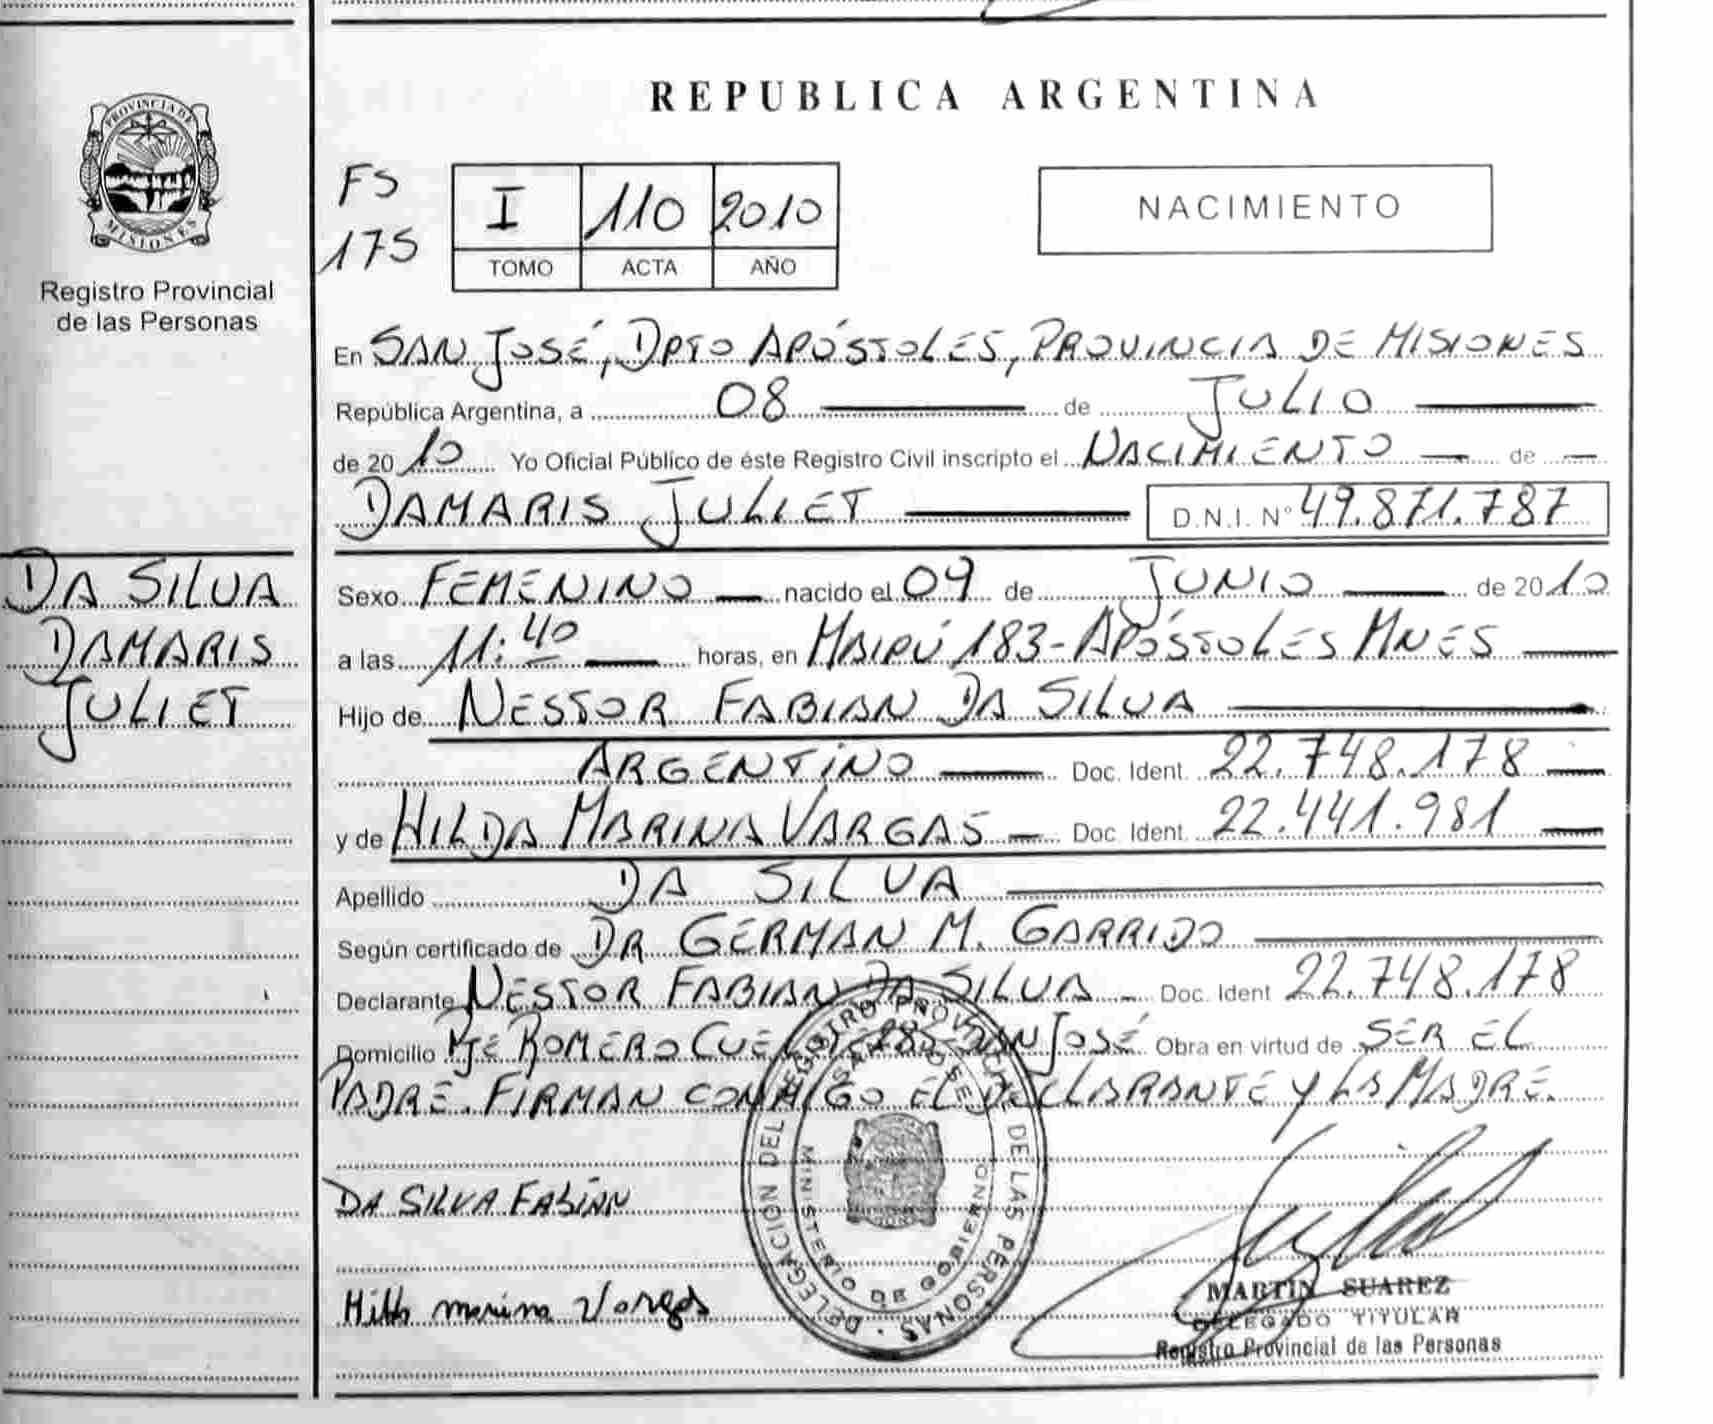 REPUBLICA ARGENTINA
PROVINCIA DE
MISIONES
Registro Provincial
de las Personas
FS
175
I 110 2010
TOMO ACTA AÑO
NACIMIENTO
En SAN JOSÉ, DPTO APÓSTOLES, PROVINCIA DE MISIONES
República Argentina, a 08 de JULIO
de 2010 Yo Oficial Público de éste Registro Civil inscripto el NACIMIENTO de
DAMARIS JULIET D.N.I. Nº 49.871.787
DA SILVA
DAMARIS
JULIET
Sexo FEMENINO nacido el 09 de JUNIO de 2010
a las 11:40 horas, en MAIPÚ 183-APÓSTOLES MNES
Hijo de NESTOR FABIAN DA SILVA
ARGENTINO Doc. Ident. 22.748.178
y de HILDA MARINA VARGAS Doc. Ident. 22.441.981
Apellido DA SILVA
Según certificado de DR GERMAN M. GARRIDO
Declarante NESTOR FABIAN DA SILVA Doc. Ident 22.748.178
Domicilio PJE ROMERO SAN JOSÉ Obra en virtud de SER EL
PADRE. FIRMAN CONMIGO EL DECLARANTE Y LA MADRE.
DELEGACION DEL REGISTRO PROVINCIAL DE LAS PERSONAS
SAN JOSE
MINISTERIO DE GOBIERNO
DA SILVA FABIAN
Hilda marina Vargas
MARTIN SUAREZ
DELEGADO TITULAR
Registro Provincial de las Personas